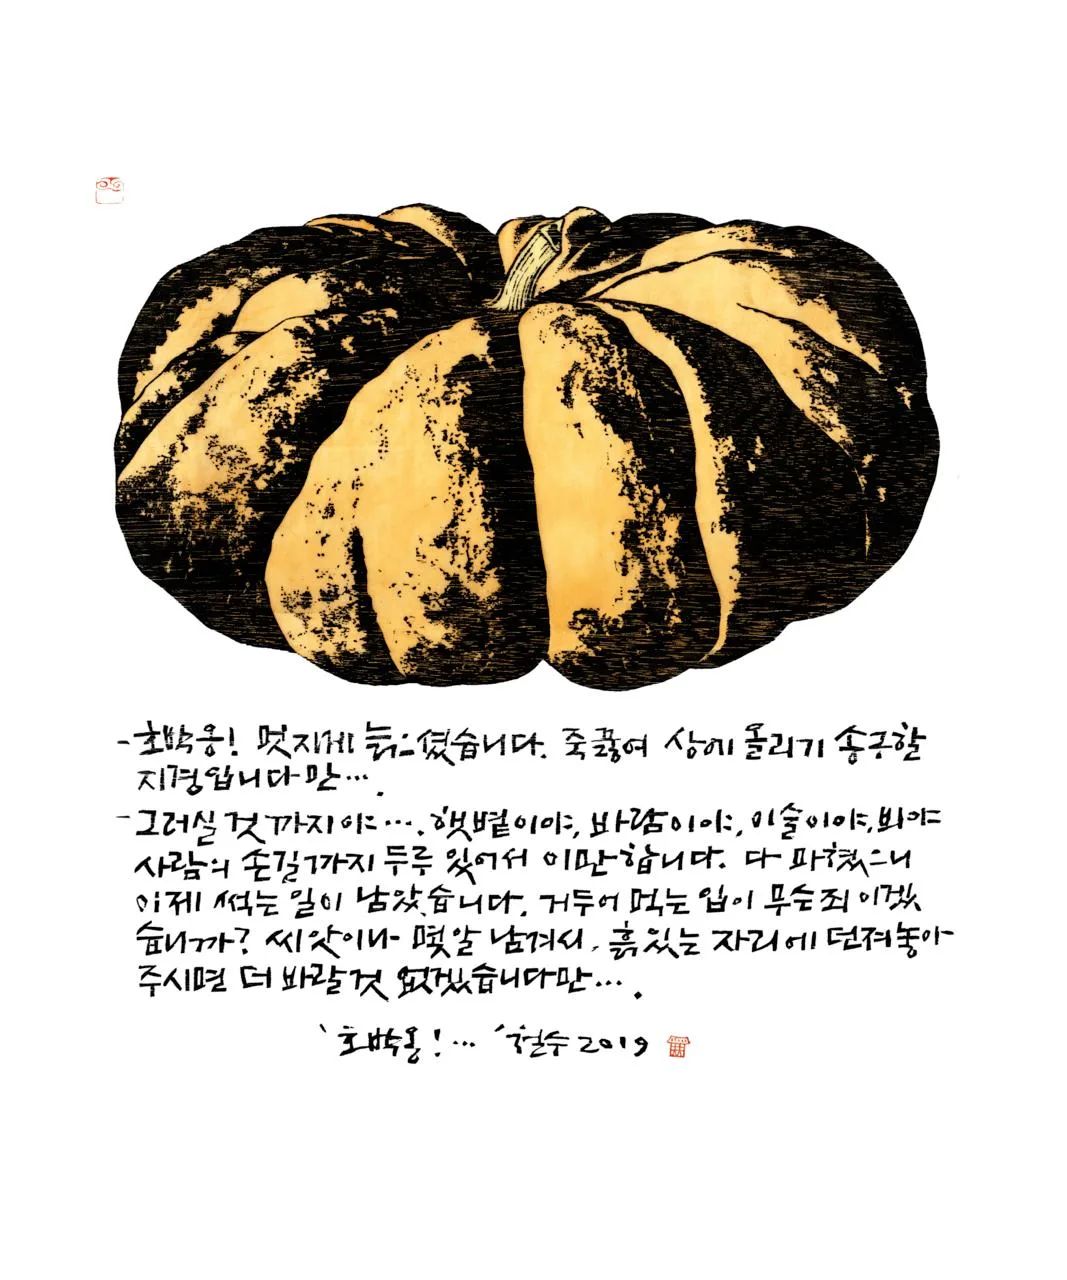 -호박옹! 멋지게 늙으셨습니다. 죽끓여 상에 올리기 송구할
지경입니다만….
-그러실 것까지야…. 햇볕이야, 바람이야, 이슬이야, 봐야
사람의 손길까지 두루 있어서 이만합니다. 다 파했으니
이제 썩는 일이 남았습니다. 거두어 먹는 입이 무슨죄이겠
습니까? 씨앗이나 몇알 남겨서, 흙있는 자리에 던져놓아
주시면 더 바랄것 없겠습니다만….
'호박옹!… '철수 2019